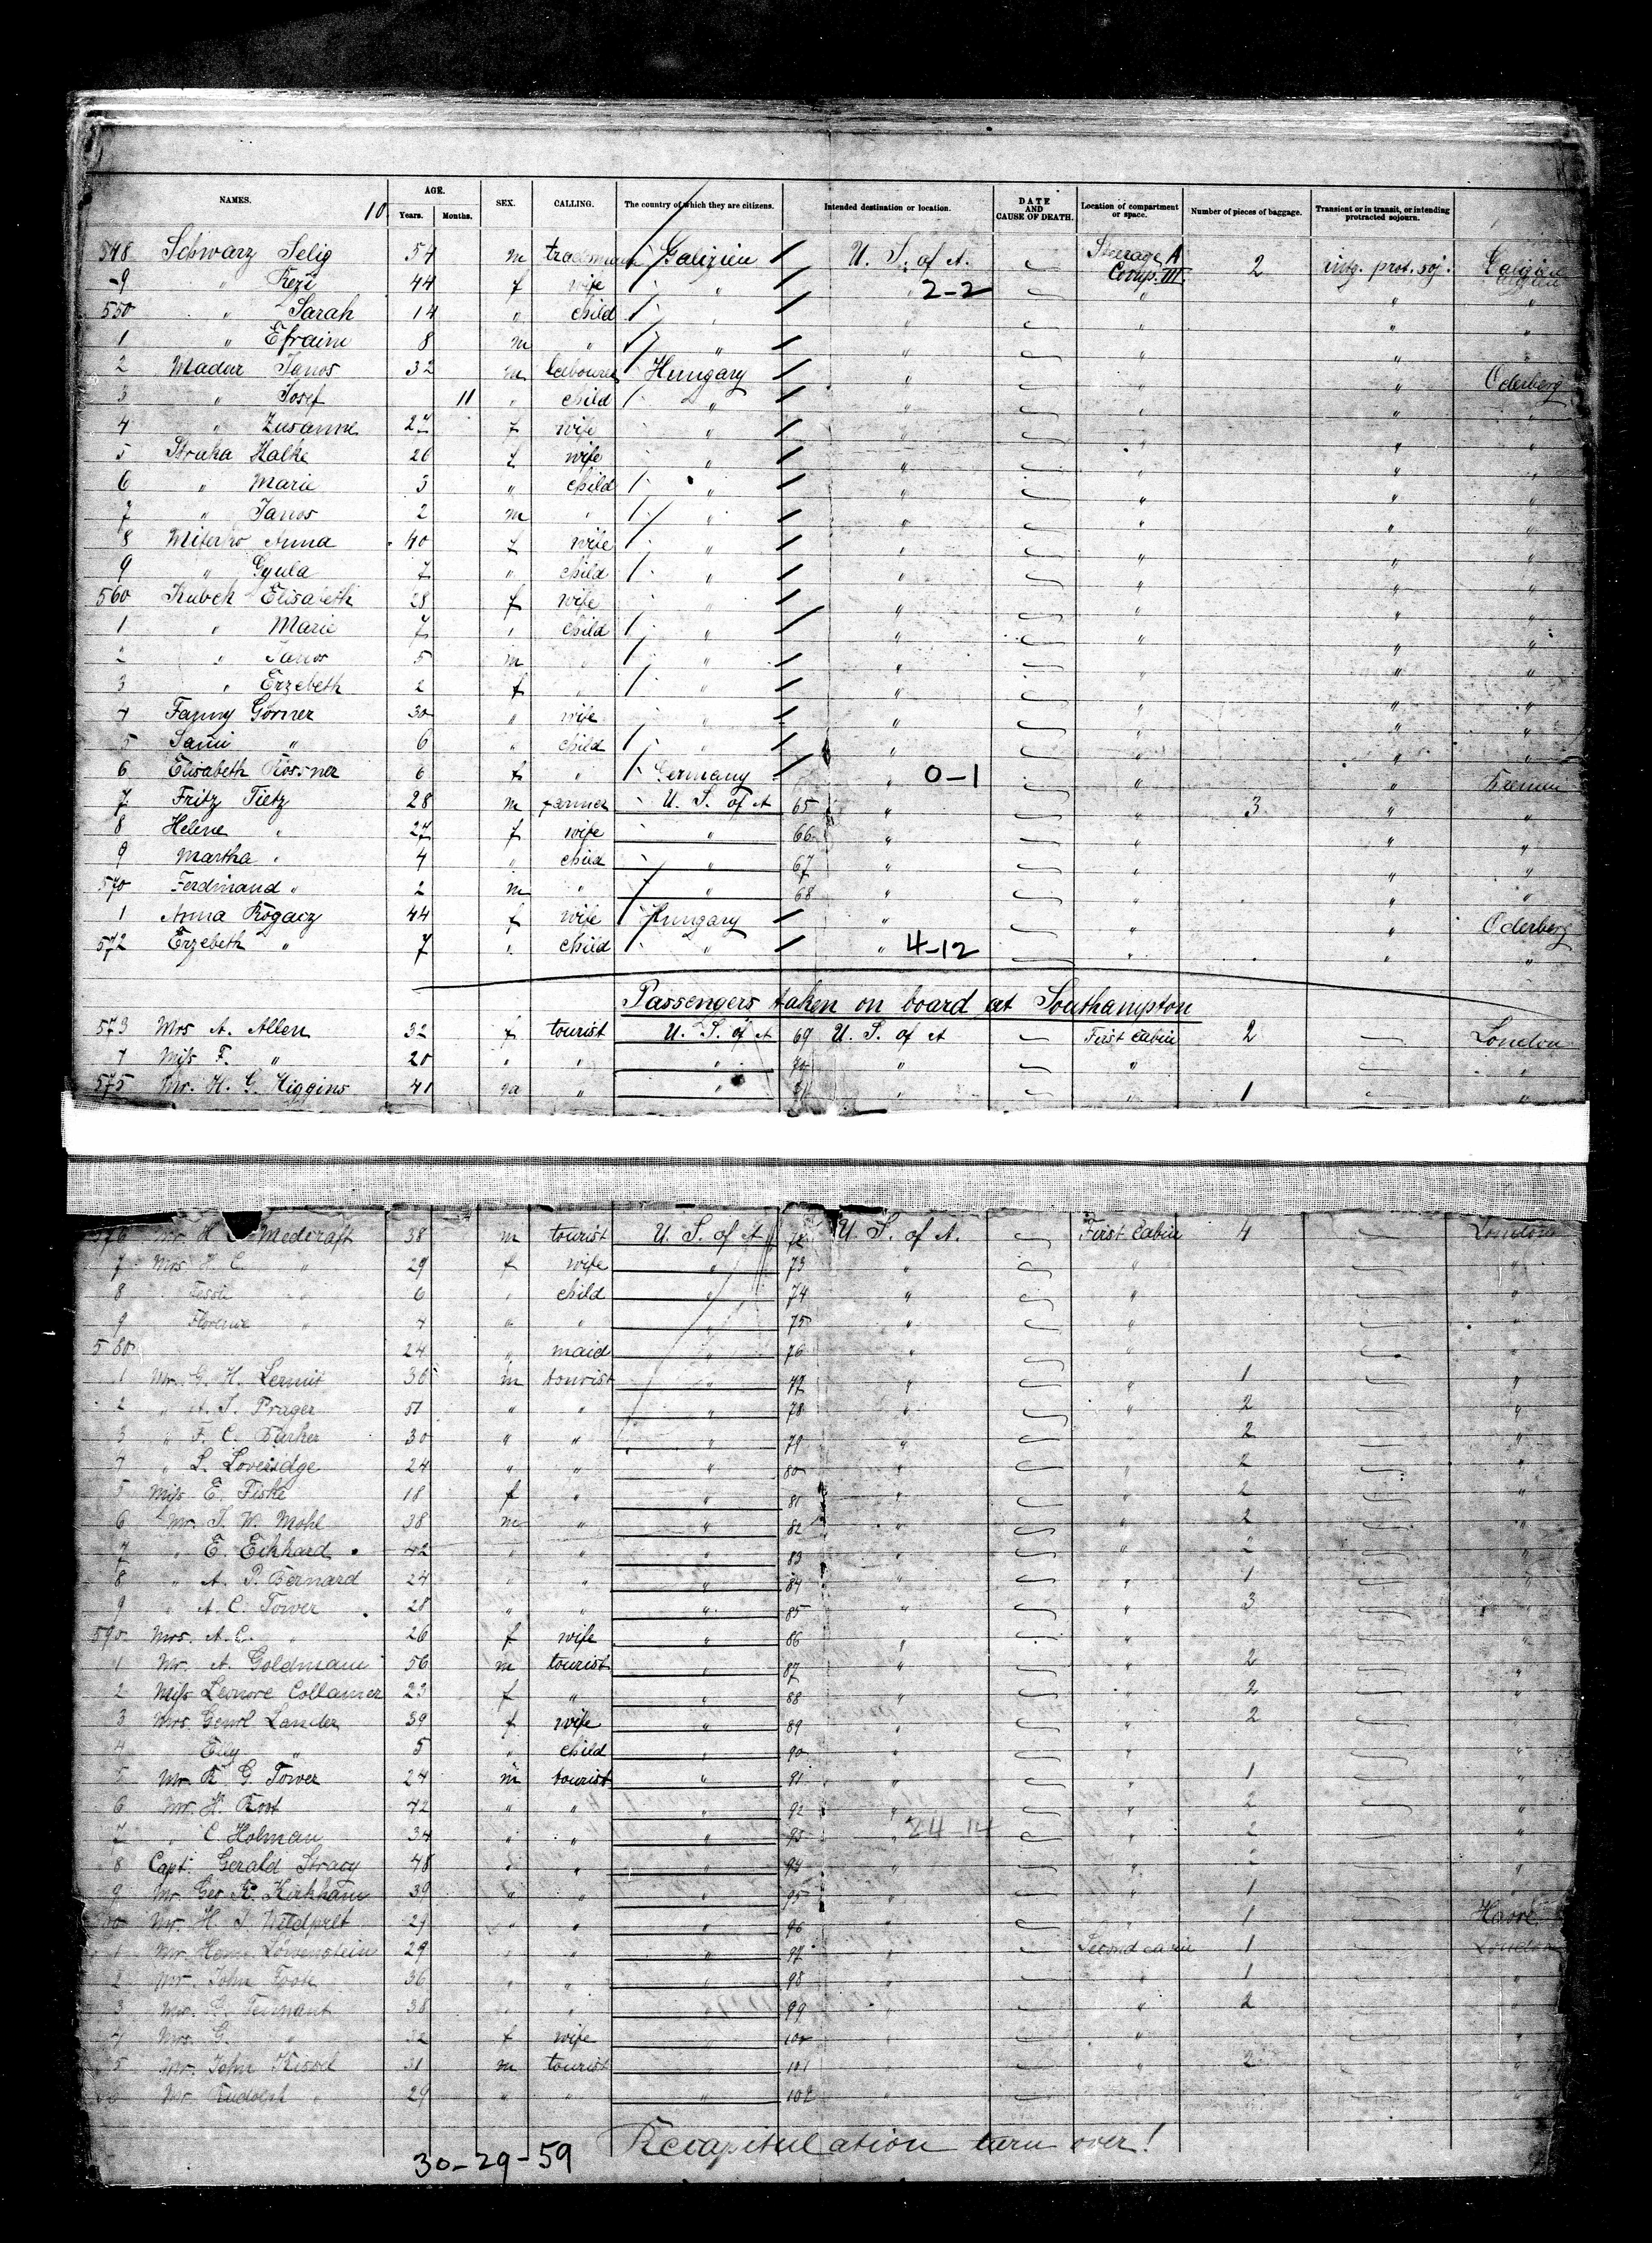 NAMES. AGE. SEX. CALLING. The country of which they are citizens. Intended destination or location. DATE AND CAUSE OF DEATH. Location of compartment or space. Number of pieces of baggage. Transient or in transit, or intending protracted sojourn.
10. Years. Months.
548 Schwarz Selig 54 m Galizien U. S. of A. Steerage A Comp. III. 2 intg. prot. soj.
-9 " Rezi 44 f wife " " 2-2 "
550 " Sarah 14 " child " " " " "
1 " Efraim 8 m " " " " " "
2 Madar Janos 32 m labourer Hungary " " " Oderberg
3 " Josef 11 " child " " " " "
4 " Zusanne 27 f wife " " " " "
5 Struha Halke 26 f wife " " " " "
6 " Marie 3 " child " " " " "
7 " Janos 2 m " " " " " "
8 Anna 40 f wife " " " " "
9 " Gyula 7 " child " " " " "
560 Kubek Elisabeth 28 f wife " " " " "
1 " Marie 7 " child " " " " "
2 " Janos 5 m " " " " " "
3 " Erzebeth 2 f " " " " " "
4 Fanny Görner 30 " wife " " " " "
5 Sami " 6 " child " " " " "
6 Elisabeth Rössner 6 f " Germany " 0-1 " "
7 Fritz Tietz 28 m farmer U. S. of A 65 " " 3 " "
8 Helene " 27 f wife " 66 " " " "
9 Martha " 4 " child " 67 " " " "
570 Ferdinand " 2 m " " 68 " " " "
1 Anna Rogacz 44 f wife Hungary " " " Oderberg
572 Erzebeth " 7 " child " " 4-12 " " "
Passengers taken on board at Southampton
573 Mrs A. Allen 32 f tourist U. S. of A 69 U. S. of A First Cabin 2 London
4 Miss F. " 20 " " " 70 " " "
575 Mr. H. G. Higgins 41 m " " 71 " " 1 "
576 Mr H Medcraft 38 m tourist U. S. of A 72 U. S. of A. First Cabin 4 London
7 Mrs H. C. " 29 f wife " 73 " " "
8 " 6 " child " 74 " " "
9 Florence " 4 " " " 75 " " "
580 24 " maid " 76 " " "
1 Mr. G. H. 36 m tourist " 77 " " 1 "
2 " A. J. Prager 51 " " " 78 " " 2 "
3 " F. C. Barker 30 " " " 79 " " 2 "
4 " L. Loveridge 24 " " " 80 " " 2 "
5 Miss E. Fiske 18 f " " 81 " " 2 "
6 Mr. J. W. Mohl 38 m " " 82 " " 2 "
7 " E. Eckhard 42 " " " 83 " " 2 "
8 " A. P. Bernard 24 " " " 84 " " 1 "
9 " A. C. Tower 28 " " " 85 " " 3 "
590 Mrs. A. C. " 26 f wife " 86 " " "
1 Mr. A. Goldmann 56 m tourist " 87 " " 2 "
2 Miss Leonore Collamer 23 f " " 88 " " 2 "
3 Mrs. Genrl Lander 39 f wife " 89 " " 2 "
4 " 5 " child " 90 " " "
5 Mr. R. G. Tower 24 m tourist " 91 " " 1 "
6 Mr. H. Root 42 " " " 92 " " 2 "
7 " C Holman 34 " " " 93 " 24-14 " 2 "
8 Capt. Gerald Stracy 48 " " " 94 " " "
9 Mr. Geo R. Kirkham 39 " " " 95 " " 1 "
Mr. H. J. 29 " " " 96 " " 1 Havre
1 Mr. Löwenstein 29 " " " 97 " Second cabin 1 London
2 Mr. John Foote 36 " " " 98 " " 1 "
3 Mr. Tennant 38 " " " 99 " " 2 "
4 Mrs. G. " 32 f wife " 100 " " "
5 Mr. John Kissel 31 m tourist " 101 " " 2 "
Mr. Rudolph " 29 " " " 102 " " "
Recapitulation turn over!
30-29-59